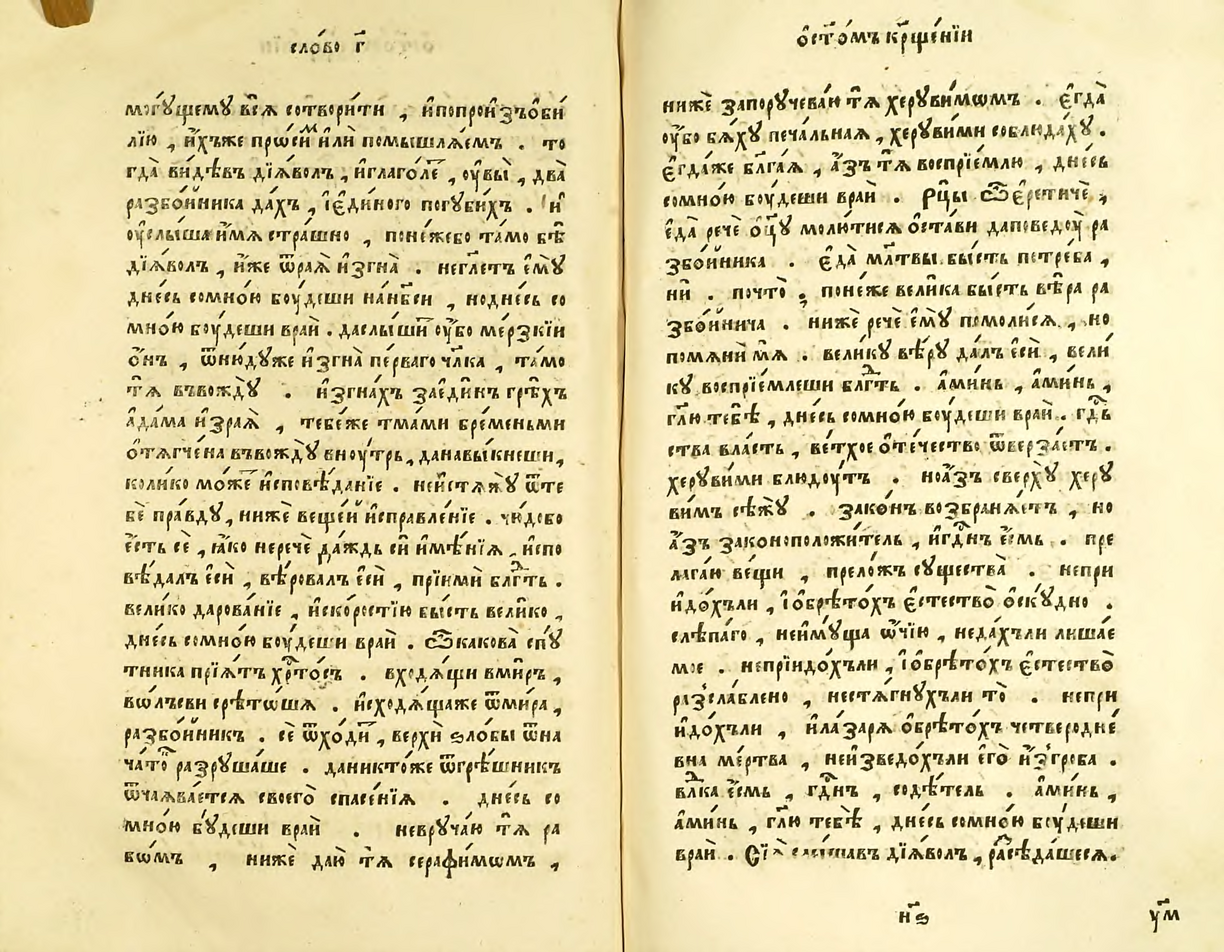 сло́во г҃
могꙋ́щемꙋ всѧ̀ сотвори́ти , и҆попроизъѻ҆би́
лїю , и҆́хъже про́симъ и҆лѝ помышлѧ́емъ . то
гда̀ ви́дѣвъ дїѧ́волъ , и҆глаго́ле , ᲂу҆вы̀ , два̀
разбо́йника да́хъ , і҆є҆ди́ного погꙋби́хъ . и҆
ᲂу҆слы́ша и҆́мѧ стра́шно , поне́жебо та́мо бѣ̀
дїѧ́волъ , и҆́же ѿраѧ̀ и҆згна̀ . неглетъ є҆мꙋ̀
дне́сь сомно́ю боу́деши нанб҃си , нодне́сь со
мно́ю боу́деши враѝ . даслы́шитъ ᲂу҆̀бо ме́рзкїи
ѻ҆́нъ , ѿню́дꙋже и҆згна̀ пе́рваго чл҃ка , та́мо
тѧ̀ въво́ждꙋ . и҆згна́хъ заеди́нъ грѣ́хъ
а҆да́ма и҆зраѧ̀ , тебе́же тма́ми бре́меньми
ѻ҆тѧгче́на въво́ждꙋ вноу́трь , данавы́кнеши ,
коли́ко мо́же и҆сповѣ́данїе . неистѧжꙋ̀ ѿте
бѐ пра́вдꙋ , нижѐ веще́й и҆справле́нїе . чю́добо
є҆́сть сѐ , ꙗ҆́ко неречѐ да́ждь сѝ и҆мѣ́нїѧ , и҆спо
вѣ́далъ є҆сѝ , вѣ́ровалъ є҆сѝ , прїимѝ бл҃гть .
вели́ко дарова́нїе , и҆ско́ростїю бы́сть вели́ко ,
дне́сь сомно́ю боу́деши враѝ . Ѿ какова̀ спꙋ́
тника прїѧ́тъ хрⷭ҇то́съ . входѧ́щи вми́ръ ,
вѡлъсви срѣ́тѡшѧ . и҆сходѧ́щаже ѿми́ра ,
разбо́йникъ . сѐ ѿхо́ди , верхѝ ѕло́бы ѿна
ча́то разрꙋша́ше . даникто́же ѿгрѣ́шникъ
ѿчаѧва́етсѧ своегѡ̀ спасе́нїѧ . дне́сь со
мно́ю бꙋ́деши враѝ . неврꙋча́ю тѧ̀ ра
бѡ́мъ , нижѐ даю̀ тѧ̀ серафи́мѡмъ ,
ѻ҆ст҃о́мъ крⷭ҇ще́нїи
нижѐ запорꙋчева́ю тѧ̀ херꙋви́мѡмъ . є҆гда̀
ᲂу҆̀бо бѧ́хꙋ печа́льнаѧ , херꙋви́ми соблюда́хꙋ .
є҆гда́же бл҃га́ѧ , а҆́зъ тѧ̀ воспрїе́млю , дне́сь
сомно́ю боу́деши враѝ . Рцы̀ ѽ є҆ретичѐ ,
є҆да̀ речѐ ѻ҆ц҃ꙋ̀ моли́тисѧ ѻ҆ста́ви даповедоу̀ ра
збо́йника . є҆да̀ мл҃твы бы́сть петре́ба ,
нѝ . почто̀ ; поне́же вели́ка бы́сть вѣ́ра ра
збо́йнича . нижѐ речѐ є҆мꙋ̀ помоли́сѧ , но
помѧнѝ мѧ̀ . вели́кꙋ вѣ́рꙋ да́лъ є҆сѝ , вели́
кꙋ воспрїе́млеши бл҃гть . а҆ми́нь , а҆ми́нь ,
гл҃ю тебѣ̀ , дне́сь сомно́ю боу́деши враѝ . гдⷭ҇ь
ства вла́сть , ве́тхое ѻ҆те́чество ѿверза́етъ .
херꙋви́ми блюдоу́тъ . ноа҆́зъ све́рхꙋ херꙋ
ви́мъ сѣжꙋ̀ . зако́нъ возбранѧ́етъ , но
а҆́зъ законоположи́тель , и҆гдⷭ҇нъ є҆́смь . пре
лага́ю ве́щи , прело́жъ сꙋщества̀ . непри
и҆до́хъли , і҆ѻ҆брѣто́хъ є҆стество̀ ѻ҆скꙋ́дно .
слѣпа́го , неимꙋ́ща ѻ҆́чїю , неда́хъли лиша́е
мое . неприидо́хъли , і҆ѻ҆брѣто́хъ є҆стество̀
разсла́блено , нестѧгнꙋ́хъли то̀ . непри
и҆до́хъли , и҆ла́зарѧ ѻ҆брѣто́хъ четвероднѐ
вна ме́ртва , неизведо́хъли є҆го̀ и҆згро́ба .
влⷣка є҆́смь , гдⷭ҇нъ , содѣ́тель . а҆ми́нь ,
а҆ми́нь , гл҃ю тебѣ̀ , дне́сь сомно́ю боу́деши
враѝ . Сїѧ̀ слы́шавъ дїѧ́волъ , разсѣда́шесѧ .
н҃ѕ
ꙋ҆м